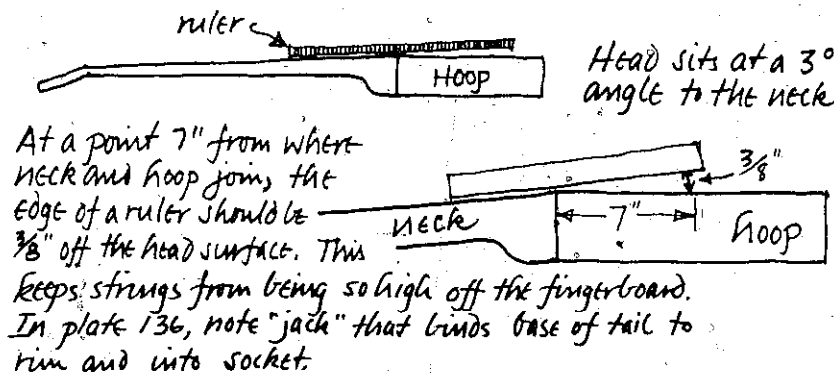 ruler
HOOP
Head sits at a 3°
angle to the neck
At a point 7" from where
neck and hoop join, the
edge of a ruler should be
3/8" off the head surface. This
keeps strings from being so high off the fingerboard.
In plate 136, note "jack" that binds base of tail to
rim and into socket.
neck
7"
3/8"
hoop